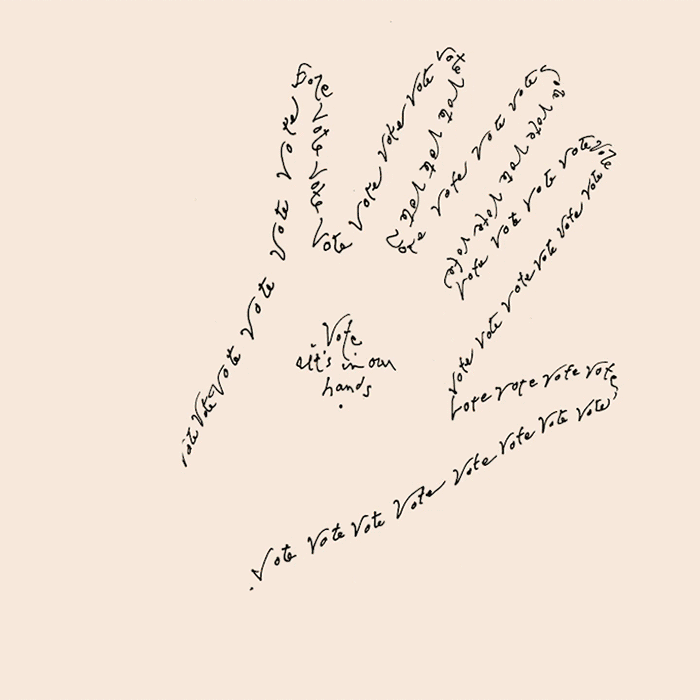 Vote Vote Vote Vote Vote Vote
Vote vote vote
Vote Vote Vote Vote Vote
Vote Vote Vote
Vote Vote Vote Vote
Vote Vote Vote Vote Vote
Vote Vote Vote Vote
Vote Vote Vote Vote Vote Vote Vote
Vote
It's in our
hands
.
Vote Vote Vote Vote
Vote Vote Vote Vote Vote Vote Vote Vote